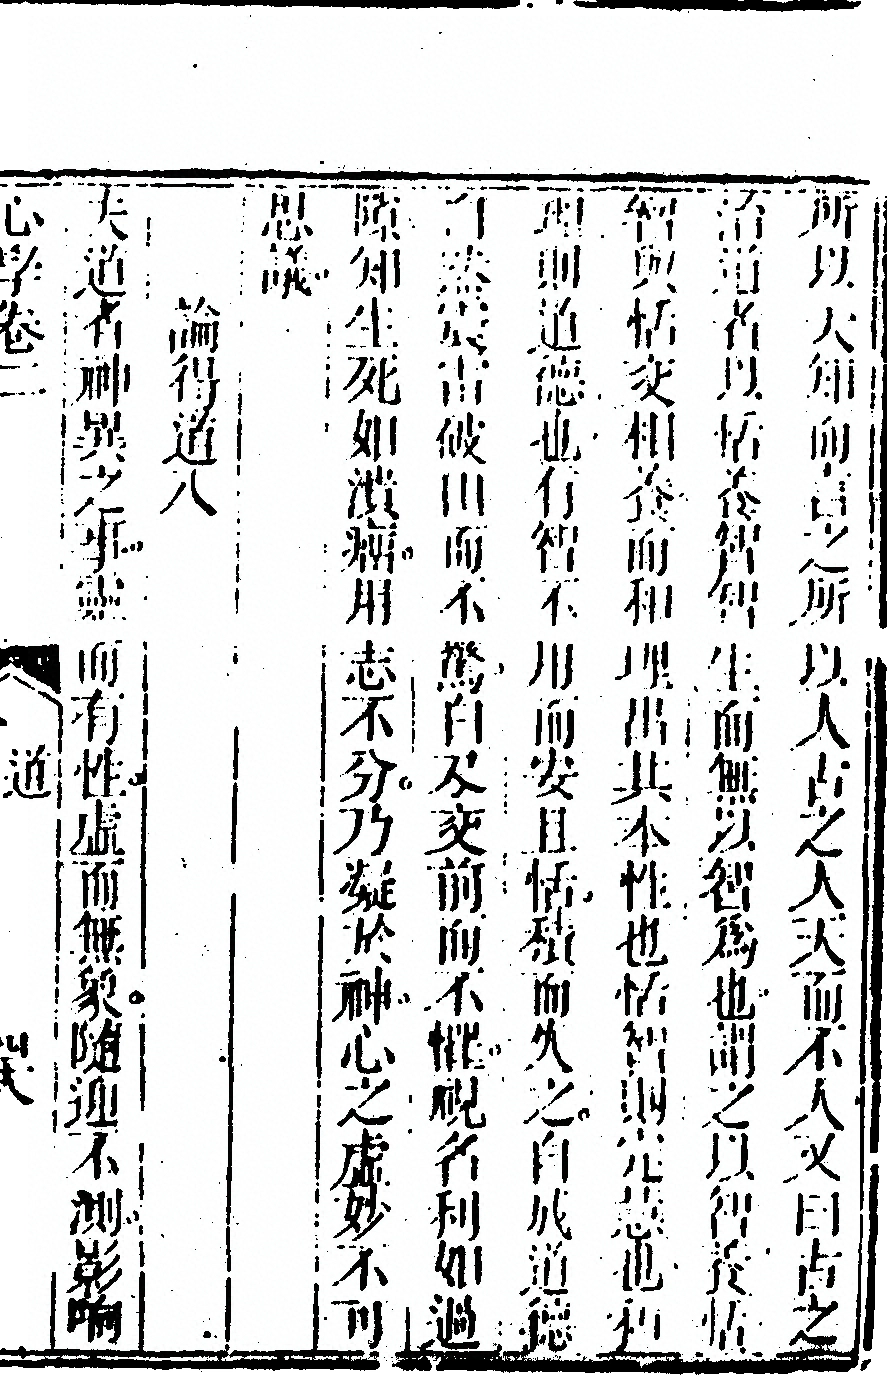 所以天知而言之所以人古之人天而不人又曰古之
治道者以恬養智智生而無以智爲也謂之以智養恬
智與恬交相養而和理出其本性也恬智則定慧也和
理則道德也有智不用而安且恬積而久之自成道德
自然震雷破山而不驚白刃交前而不懼視名利如過
隙知生死如潰癰用志不分乃凝於神心之虛妙不可
思議
論得道八
夫道者神異之事靈而有性虛而無象隨迎不測影響
心學卷二
道